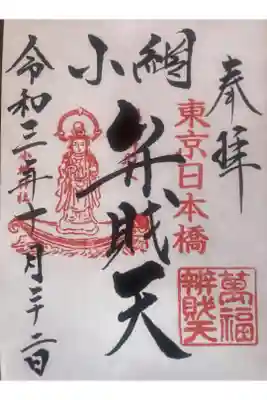 奉拝
東京日本橋
小網
弁財天
萬福
辨財天
令和三年十月日